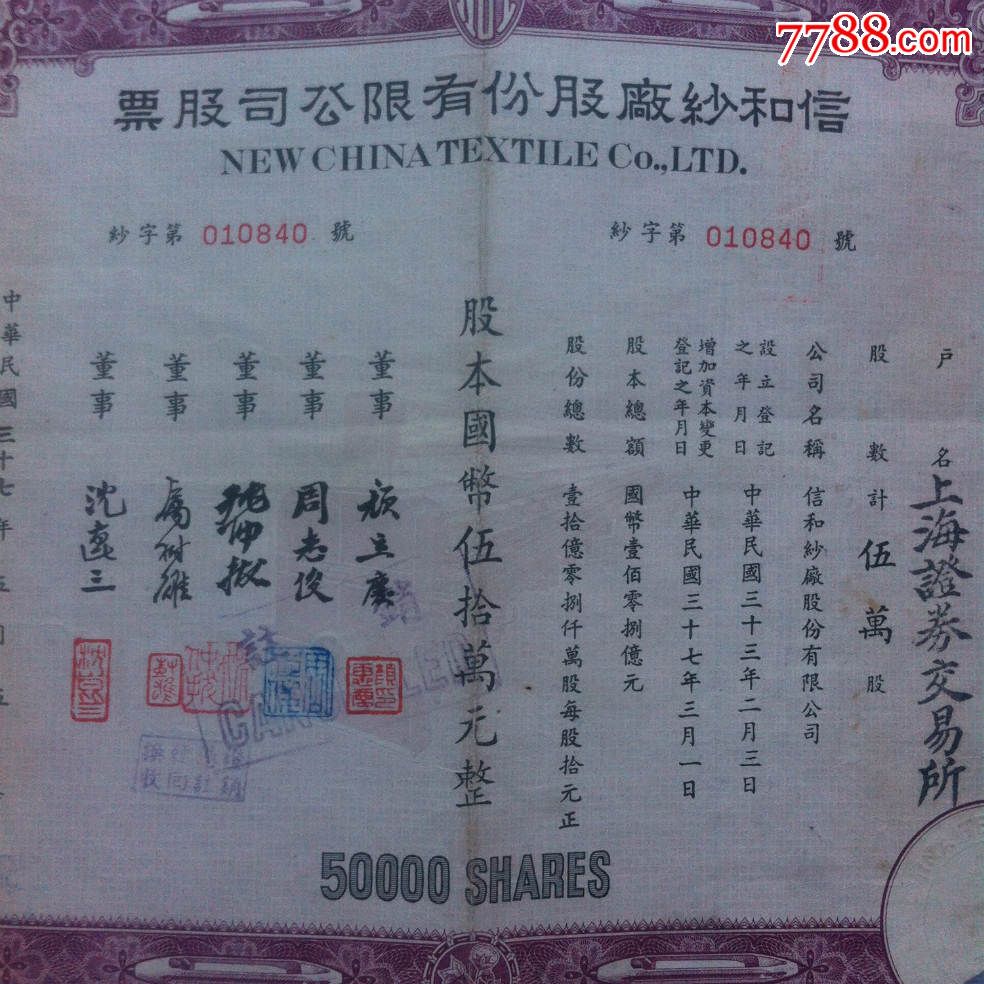 7788.com
信和紗廠股份有限公司股票
NEW CHINA TEXTILE Co.,LTD.
紗字第 010840 號
紗字第 010840 號
戶名 上海證券交易所
股數計 伍萬 股
公司名稱 信和紗廠股份有限公司
設立登記之年月日 中華民國三十三年二月三日
增加資本變更登記之年月日 中華民國三十七年三月一日
股本總額 國幣壹佰零捌億元
股份總數 壹拾億零捌仟萬股每股拾元正
股本國幣伍拾萬元整
董事
董事 周志俊
董事
董事
董事 沈邁三
中華民國三十七年五月五
50000 SHARES
註銷
CANCELLED